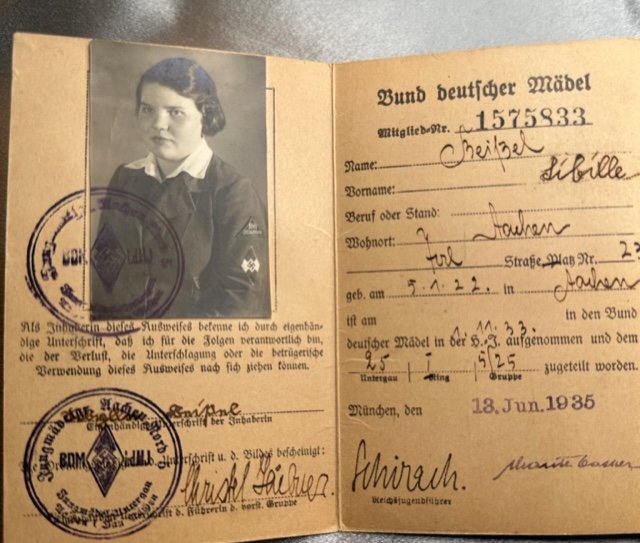 Als Inhaberin dieses Ausweises bekenne ich durch eigenhän-
dige Unterschrift, daß ich für die Folgen verantwortlich bin,
die der Verlust, die Unterschlagung oder die betrügerische
Verwendung dieses Ausweises nach sich ziehen können.
Eigenhändige Unterschrift der Inhaberin
Unterschrift u. d. Bildes bescheinigt:
BDM
Unterschrift d. Führerin d. vorst. Gruppe
Bund deutscher Mädel
Mitglied-Nr. 1575833
Name:
Vorname: Sibille
Beruf oder Stand:
Wohnort: Aachen
Straße Platz Nr. 23
geb. am 5.1.22. in Aachen
ist am 1.11.33. in den Bund
deutscher Mädel in der H.-J. aufgenommen und dem
25 I 5/25 zugeteilt worden.
Untergau Ring Gruppe
München, den 13. Jun. 1935
Schirach.
Reichsjugendführer